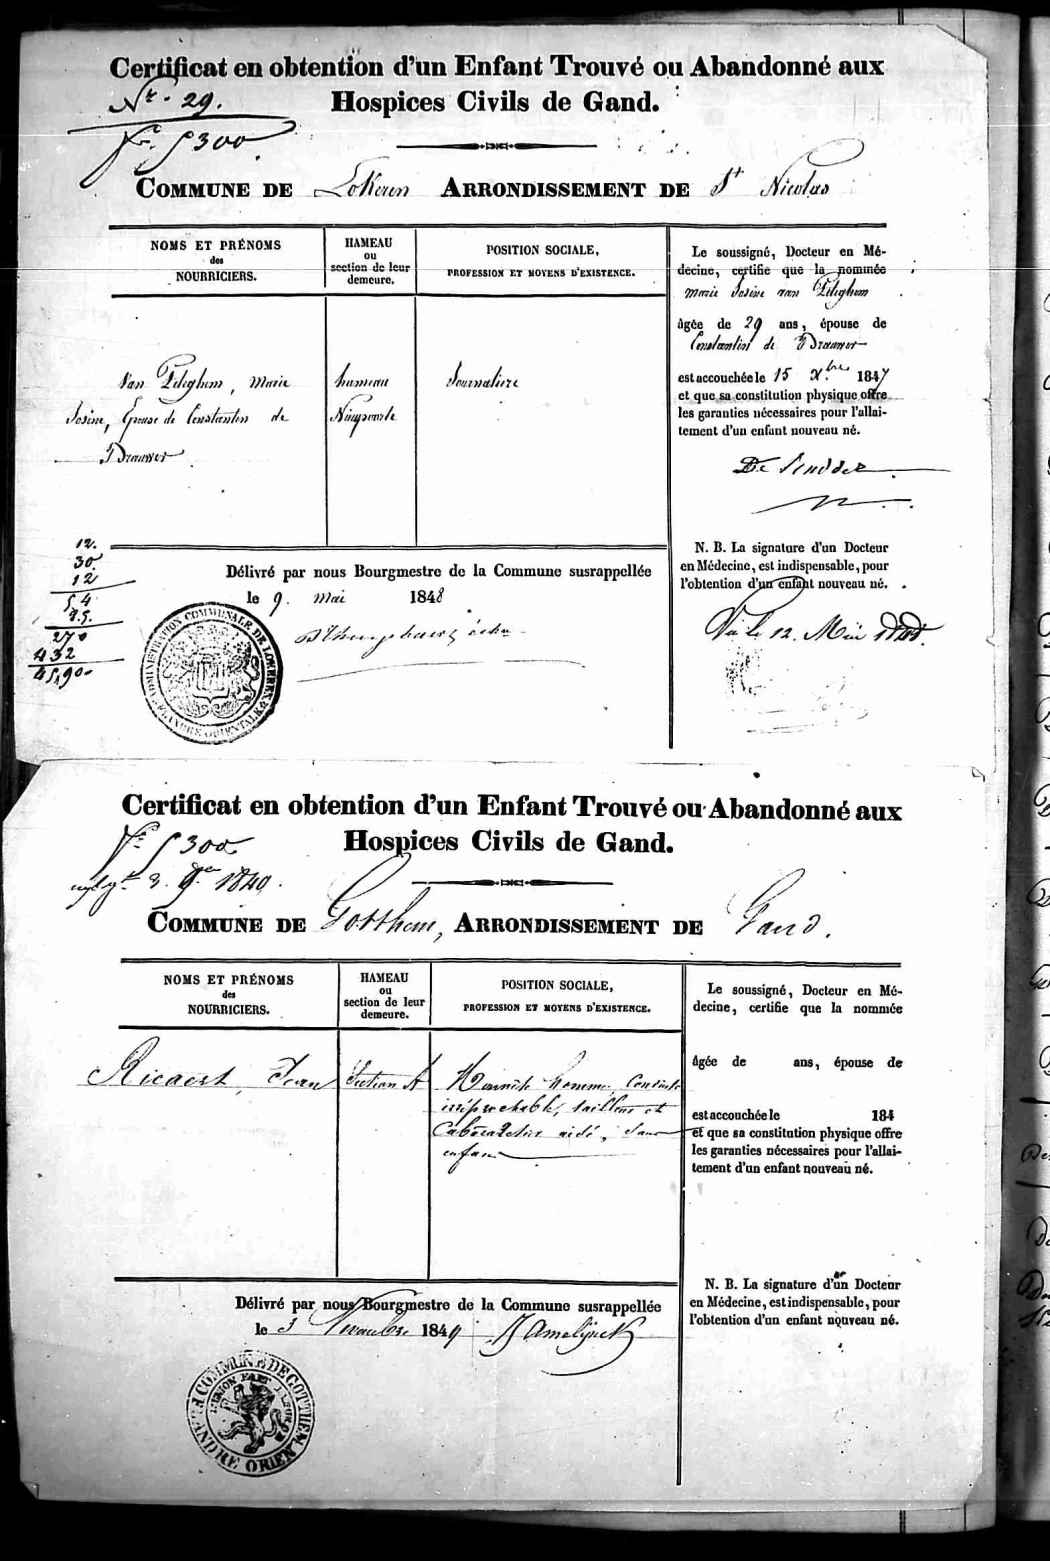 Certificat en obtention d'un Enfant Trouvé ou Abandonné aux
Hospices Civils de Gand.
Nr. 29.
5300
COMMUNE DE Lokeren ARRONDISSEMENT DE St Nicolas
NOMS ET PRÉNOMS
des
NOURRICIERS.
HAMEAU
ou
section de leur
demeure.
POSITION SOCIALE,
PROFESSION ET MOYENS D'EXISTENCE.
Van Peteghem, Marie
Josine, Epouse de Constantin de
Brauwer
hameau
Journalière
Le soussigné, Docteur en Mé-
decine, certifie que la nommée
Marie Josine van Peteghem
âgée de 29 ans, épouse de
Constantin de Brauwer
est accouchée le 15 Xbre 1847
et que sa constitution physique offre
les garanties nécessaires pour l'allai-
tement d'un enfant nouveau né.
N. B. La signature d'un Docteur
en Médecine, est indispensable, pour
l'obtention d'un enfant nouveau né.
Vu le 12. Mai 1848.
12.
30.
12
54
270
432
45,90
Délivré par nous Bourgmestre de la Commune susrappellée
le 9. mai 1848
ADMINISTRATION COMMUNALE DE LOKEREN
FLANDRE ORIENTALE
Certificat en obtention d'un Enfant Trouvé ou Abandonné aux
Hospices Civils de Gand.
5300
COMMUNE DE Gotthem, ARRONDISSEMENT DE Gand.
NOMS ET PRÉNOMS
des
NOURRICIERS.
HAMEAU
ou
section de leur
demeure.
POSITION SOCIALE,
PROFESSION ET MOYENS D'EXISTENCE.
Ricaert, Jean
Section A
Honnête homme, conduite
irréprochable, tailleur et
Cabaretier aidé, sans
enfans
Le soussigné, Docteur en Mé-
decine, certifie que la nommée
âgée de ans, épouse de
est accouchée le 184
et que sa constitution physique offre
les garanties nécessaires pour l'allai-
tement d'un enfant nouveau né.
N. B. La signature d'un Docteur
en Médecine, est indispensable, pour
l'obtention d'un enfant nouveau né.
Délivré par nous Bourgmestre de la Commune susrappellée
le 3 Novembre 1849
COMMUNE DE GOTTHEM
FLANDRE ORIEN
L'UNION FAIT LA FORCE